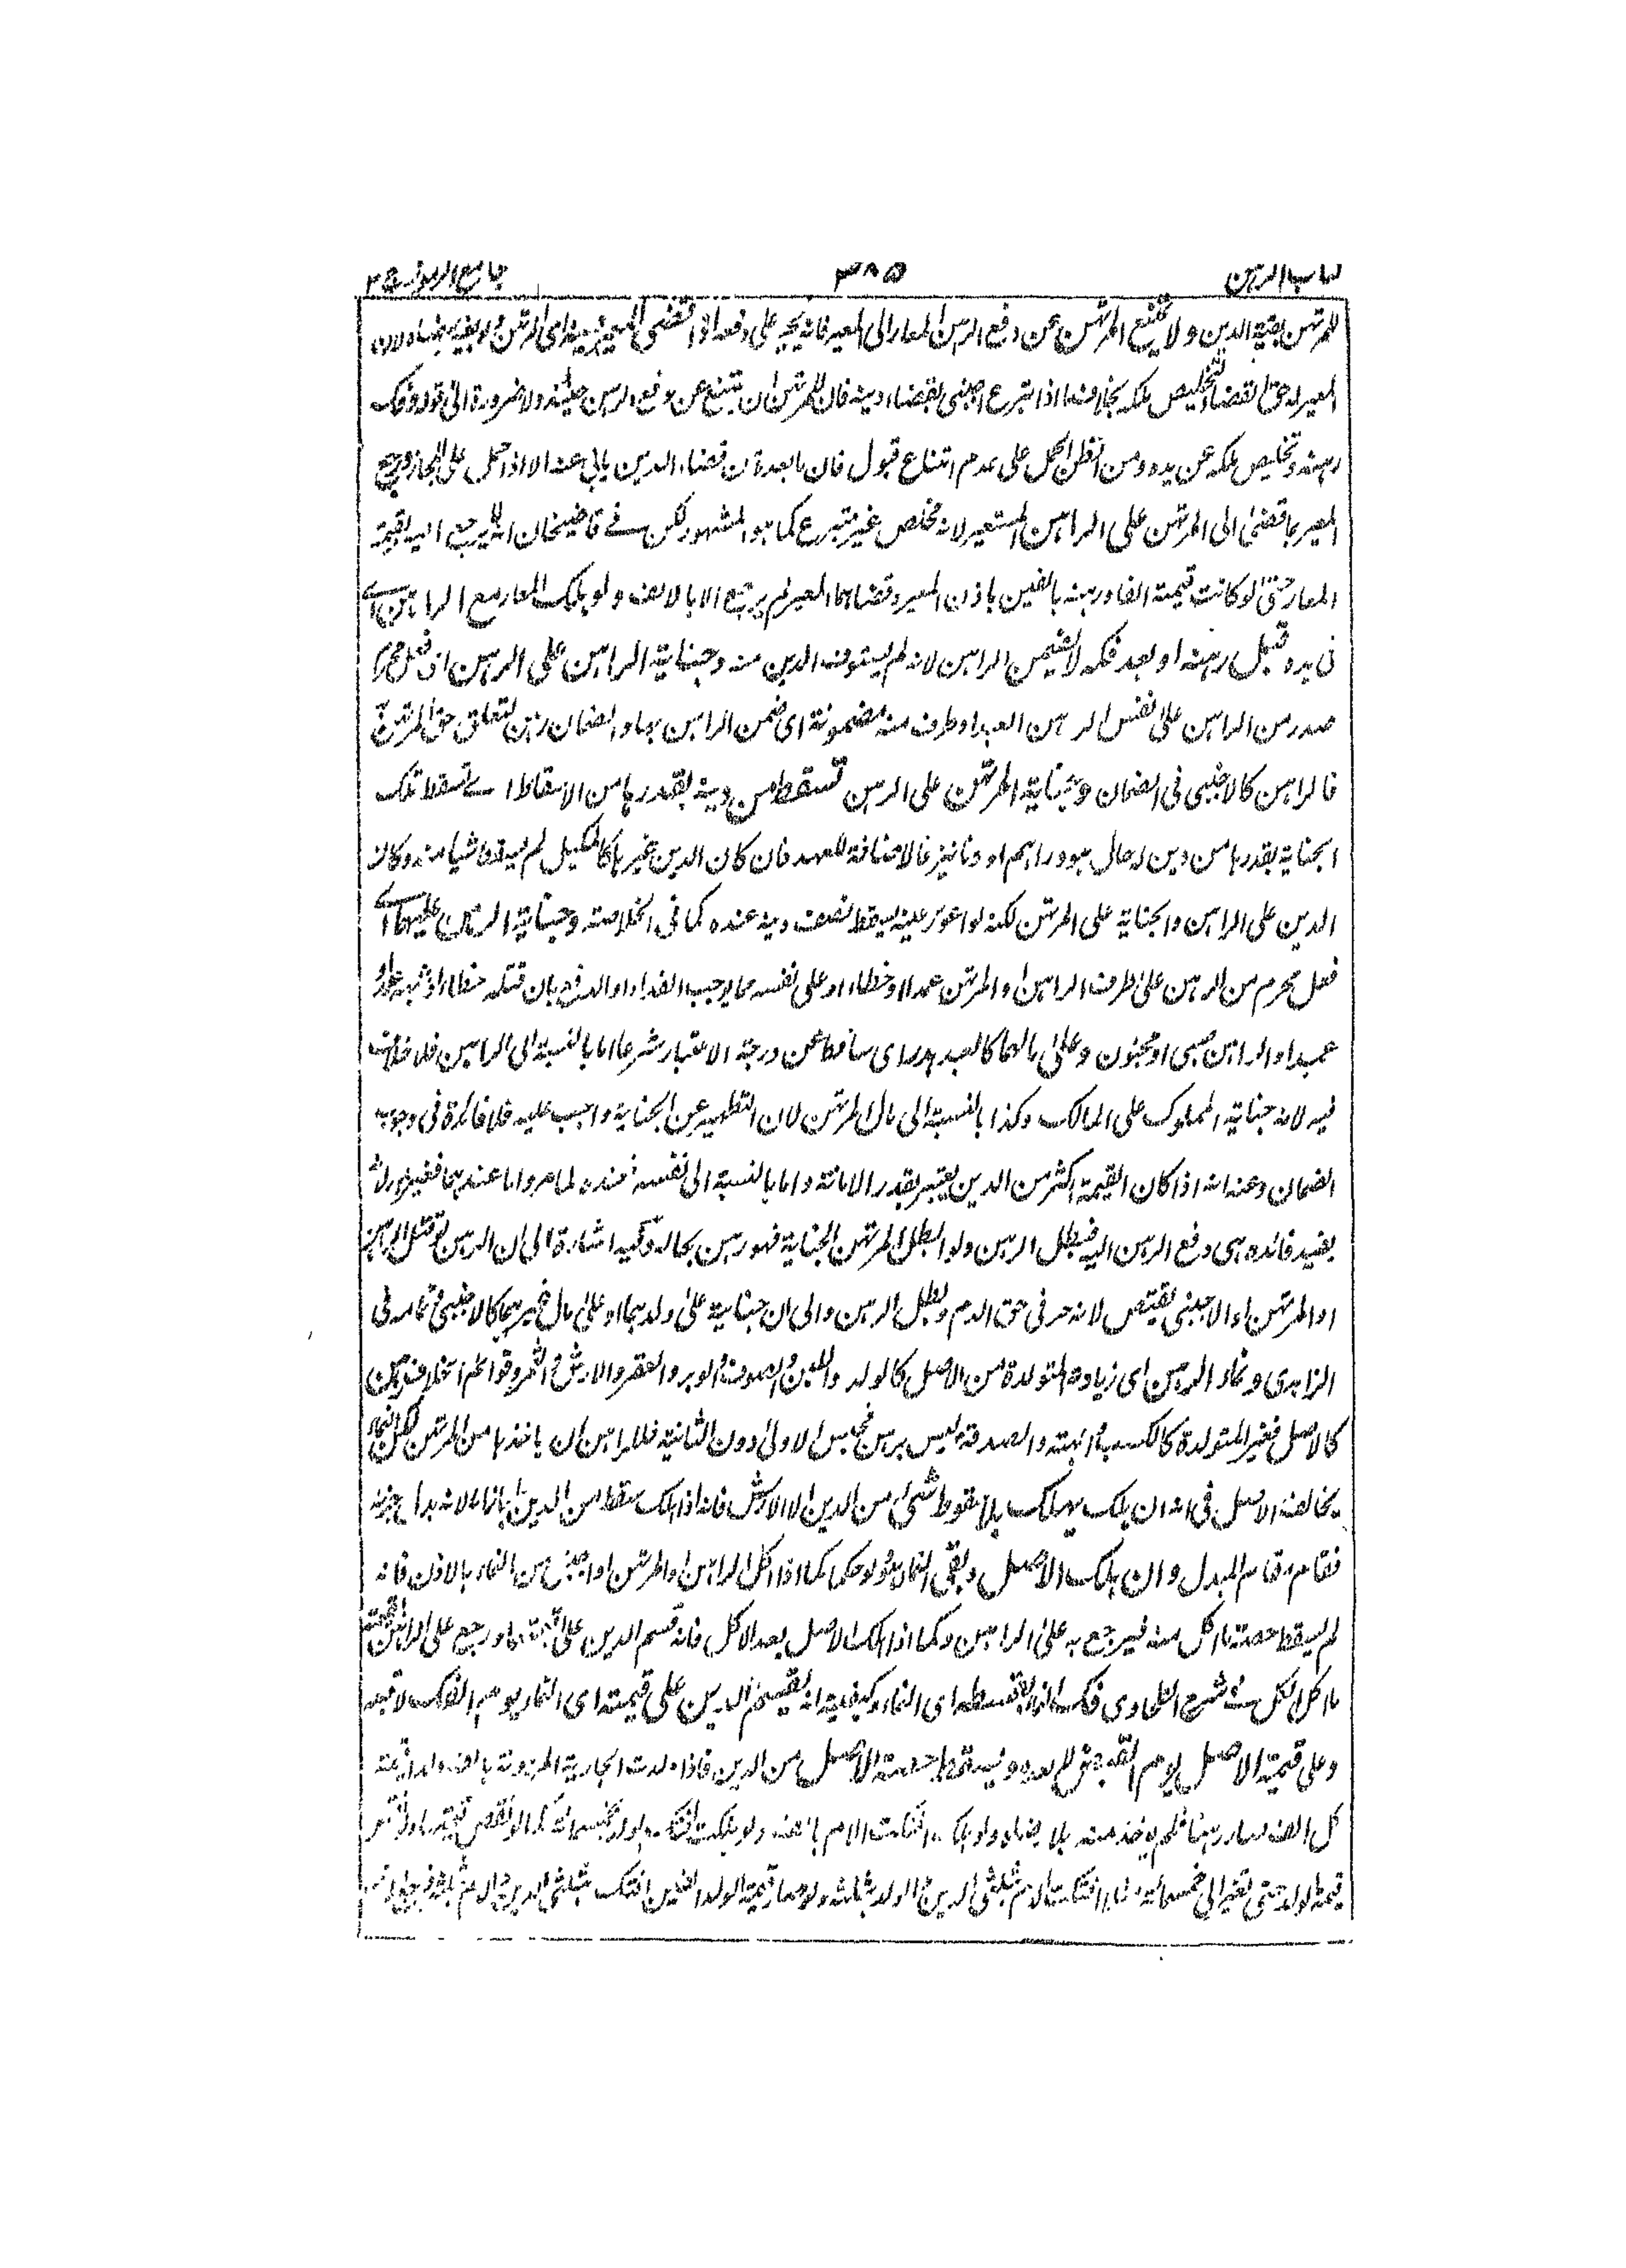 كتاب الرهن ٣٨٥ جامع الرموز ج ٢
للمرتهن بقية الدين ولا يمتنع المرتهن عن دفع الرهن المعار الى المعير فانه يجبر على دفعه اذا قضى المعير دينه اى المرتهن لان
المعير له حق القضاء لتخليص ملكه بخلاف ما اذا تبرع اجنبى بقضاء دينه فان للمرتهن ان يمتنع عن دفع الرهن حينئذ ولا ضرورة الى قوله وفك
رهنه وتخليص ملكه عن يده ومن الظن الحمل على عدم امتناع قبول فان ما بعده من قضاء الدين يأبى عنه الا اذا حمل على المجاز ورجع
المعير بما قضى الى المرتهن على الراهن المستعير لانه مخلص غير متبرع كما هو المشهور لكن فى قاضيخان انه لا يرجع اليه بقيمة
المعار حتى لو كانت قيمته الفا ورهنه بالفين باذن المعير وقضاهما المعير لم يرجع الا بالالف ولو هلك المعار مع الراهن اى
فى يده قبل رهنه او بعد فكه لا يضمن الراهن لانه لم يستوف الدين منه وجناية الراهن على الرهن اى فعل محرم
صدر من الراهن على نفس الرهن العبد او طرف منه مضمونة اى ضمن الراهن بها والضمان رهن لتعلق حق المرتهن
فالراهن كالاجنبى فى الضمان وجناية المرتهن على الرهن تسقط من دينه بقدرها من الاسقاط اى تسقط تلك
الجناية بقدرها من دين له حال هو دراهم او دنانير فالاضافة للعهد فان كان الدين غيرها كالمكيل لم يسقط شيأ منه وكان
الدين على الراهن والجناية على المرتهن لكنه لو اعور عينه يسقط نصف دينه عنده كما فى الخلاصة وجناية الرهن عليهما اى
فعل محرم من الرهن على طرف الراهن او المرتهن عمدا او خطاء او على نفسه مما يوجب الفداء او الدفع بان قتله خطاء او شبه عمد او
عبدا والراهن صبى او مجنون وعلى مالهما كالعبد هدر اى ساقطا عن درجة الاعتبار شرعا اما بالنسبة الى الراهن فلا خلاف
فيه لانه جناية المملوك على المالك وكذا بالنسبة الى مال المرتهن لان التطهير عن الجناية واجب عليه فلا فائدة فى وجوب
الضمان وعنه انه اذا كان القيمة اكثر من الدين يعتبر بقدر الامانة واما بالنسبة الى نفسه فعنده لما مر واما عندهما فغير هدر لانه
يفيد فائدة هى دفع الرهن اليه فيبطل الرهن ولو ابطل المرتهن الجناية فهو رهن بحاله وفيه اشارة الى ان الرهن لو قتل الراهن
او المرتهن او الاجنبى يقتص لانه حر فى حق الدم ويبطل الرهن والى ان جناية على ولدهما او على مال غيرهما كالاجنبى وتمامه فى
الزاهدى ونماء الرهن اى زيادته المتولدة من الاصل كالولد واللبن والصوف والوبر والعقر والارش والثمر وقوائم الخلاف رهن
كالاصل فغير المتولدة كالكسب والهبة والصدقة ليس برهن فيحبس الاولى دون الثانية فللراهن ان ياخذها من المرتهن لكن النماء
يخالف الاصل فى انه ان هلك يهلك بلا سقوط شئ من الدين الا الارش فانه اذا هلك سقط من الدين بازائه لانه بدل جزئه
فقام مقام المبدل وان هلك الاصل وبقى النماء ولو حكما كما اذا اكل الراهن او المرتهن او اجنبى من النماء بالاذن فانه
لم يسقط حصة ما اكل منه فيرجع به على الراهن وكما اذا هلك الاصل بعد الاكل فانه قسم الدين على قيمتهما ورجع على الراهن بقيمة
ما اكل الكل فى شرح الطحاوى فك النماء بقسطه اى النماء وكيفيته انه يقسم الدين على قيمته اى النماء يوم الفك لا قبله
وعلى قيمة الاصل يوم القبض لا بعده ويسقط حصة الاصل من الدين فاذا ولدت الجارية المرهونة بالف ولدا قيمة
كل الف صار رهنا فلم يوخذ منه بلا ولو هلك افتكت الام بالف ولو هلكت افتك الولد بخمسمائة
قيمة الولد حتى تغير الى خمسمائة افتكت الام بثلثى الدين والولد بثلثه ولو صار قيمة الولد الفين افتك بثلثى الدين